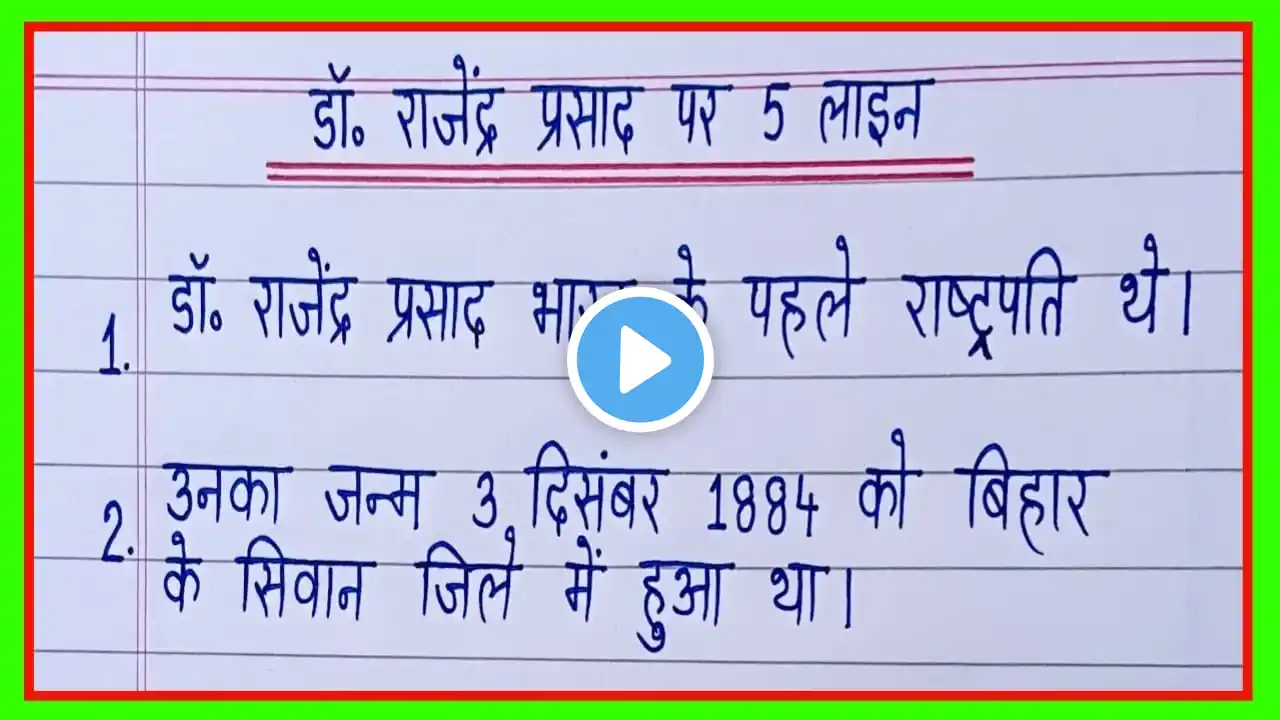 डॉ. राजेंद्र प्रसाद पर 5 लाइन
1. डॉ. राजेंद्र प्रसाद के पहले राष्ट्रपति थे।
2. उनका जन्म 3 दिसंबर 1884 को बिहार
के सिवान जिले में हुआ था।